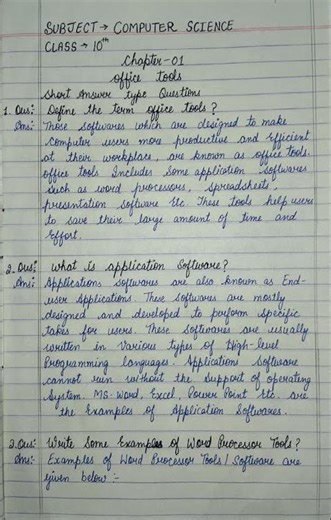 SUBJECT → COMPUTER SCIENCE
CLASS → 10th
Chapter-01
office tools
Short Answer type Questions
1. Ques: Define the term office tools?
Ans: Those softwares which are designed to make
computer users more productive and Efficient
at their workplace, are known as office tools.
office tools Includes Some application Softwares
Such as word processors, Spreadsheets,
presentation Software Etc. These tools help users
to save their large amount of time and
Effort.
2. Ques: What is application Software?
Ans: Applications Softwares are also known as End-
user Applications. These Softwares are mostly
designed and developed to perform Specific
takes for users. These Softwares are usually
written in Various types of High-level
Programming languages. Applications Software
cannot run without the Support of operating
System. MS-Word, Excel, Power Point Etc. are
the Examples of Application Softwares.
3. Ques: Write Some Examples of Word Processor Tools?
Ans: Examples of Word Processor Tools / Software are
given below :-